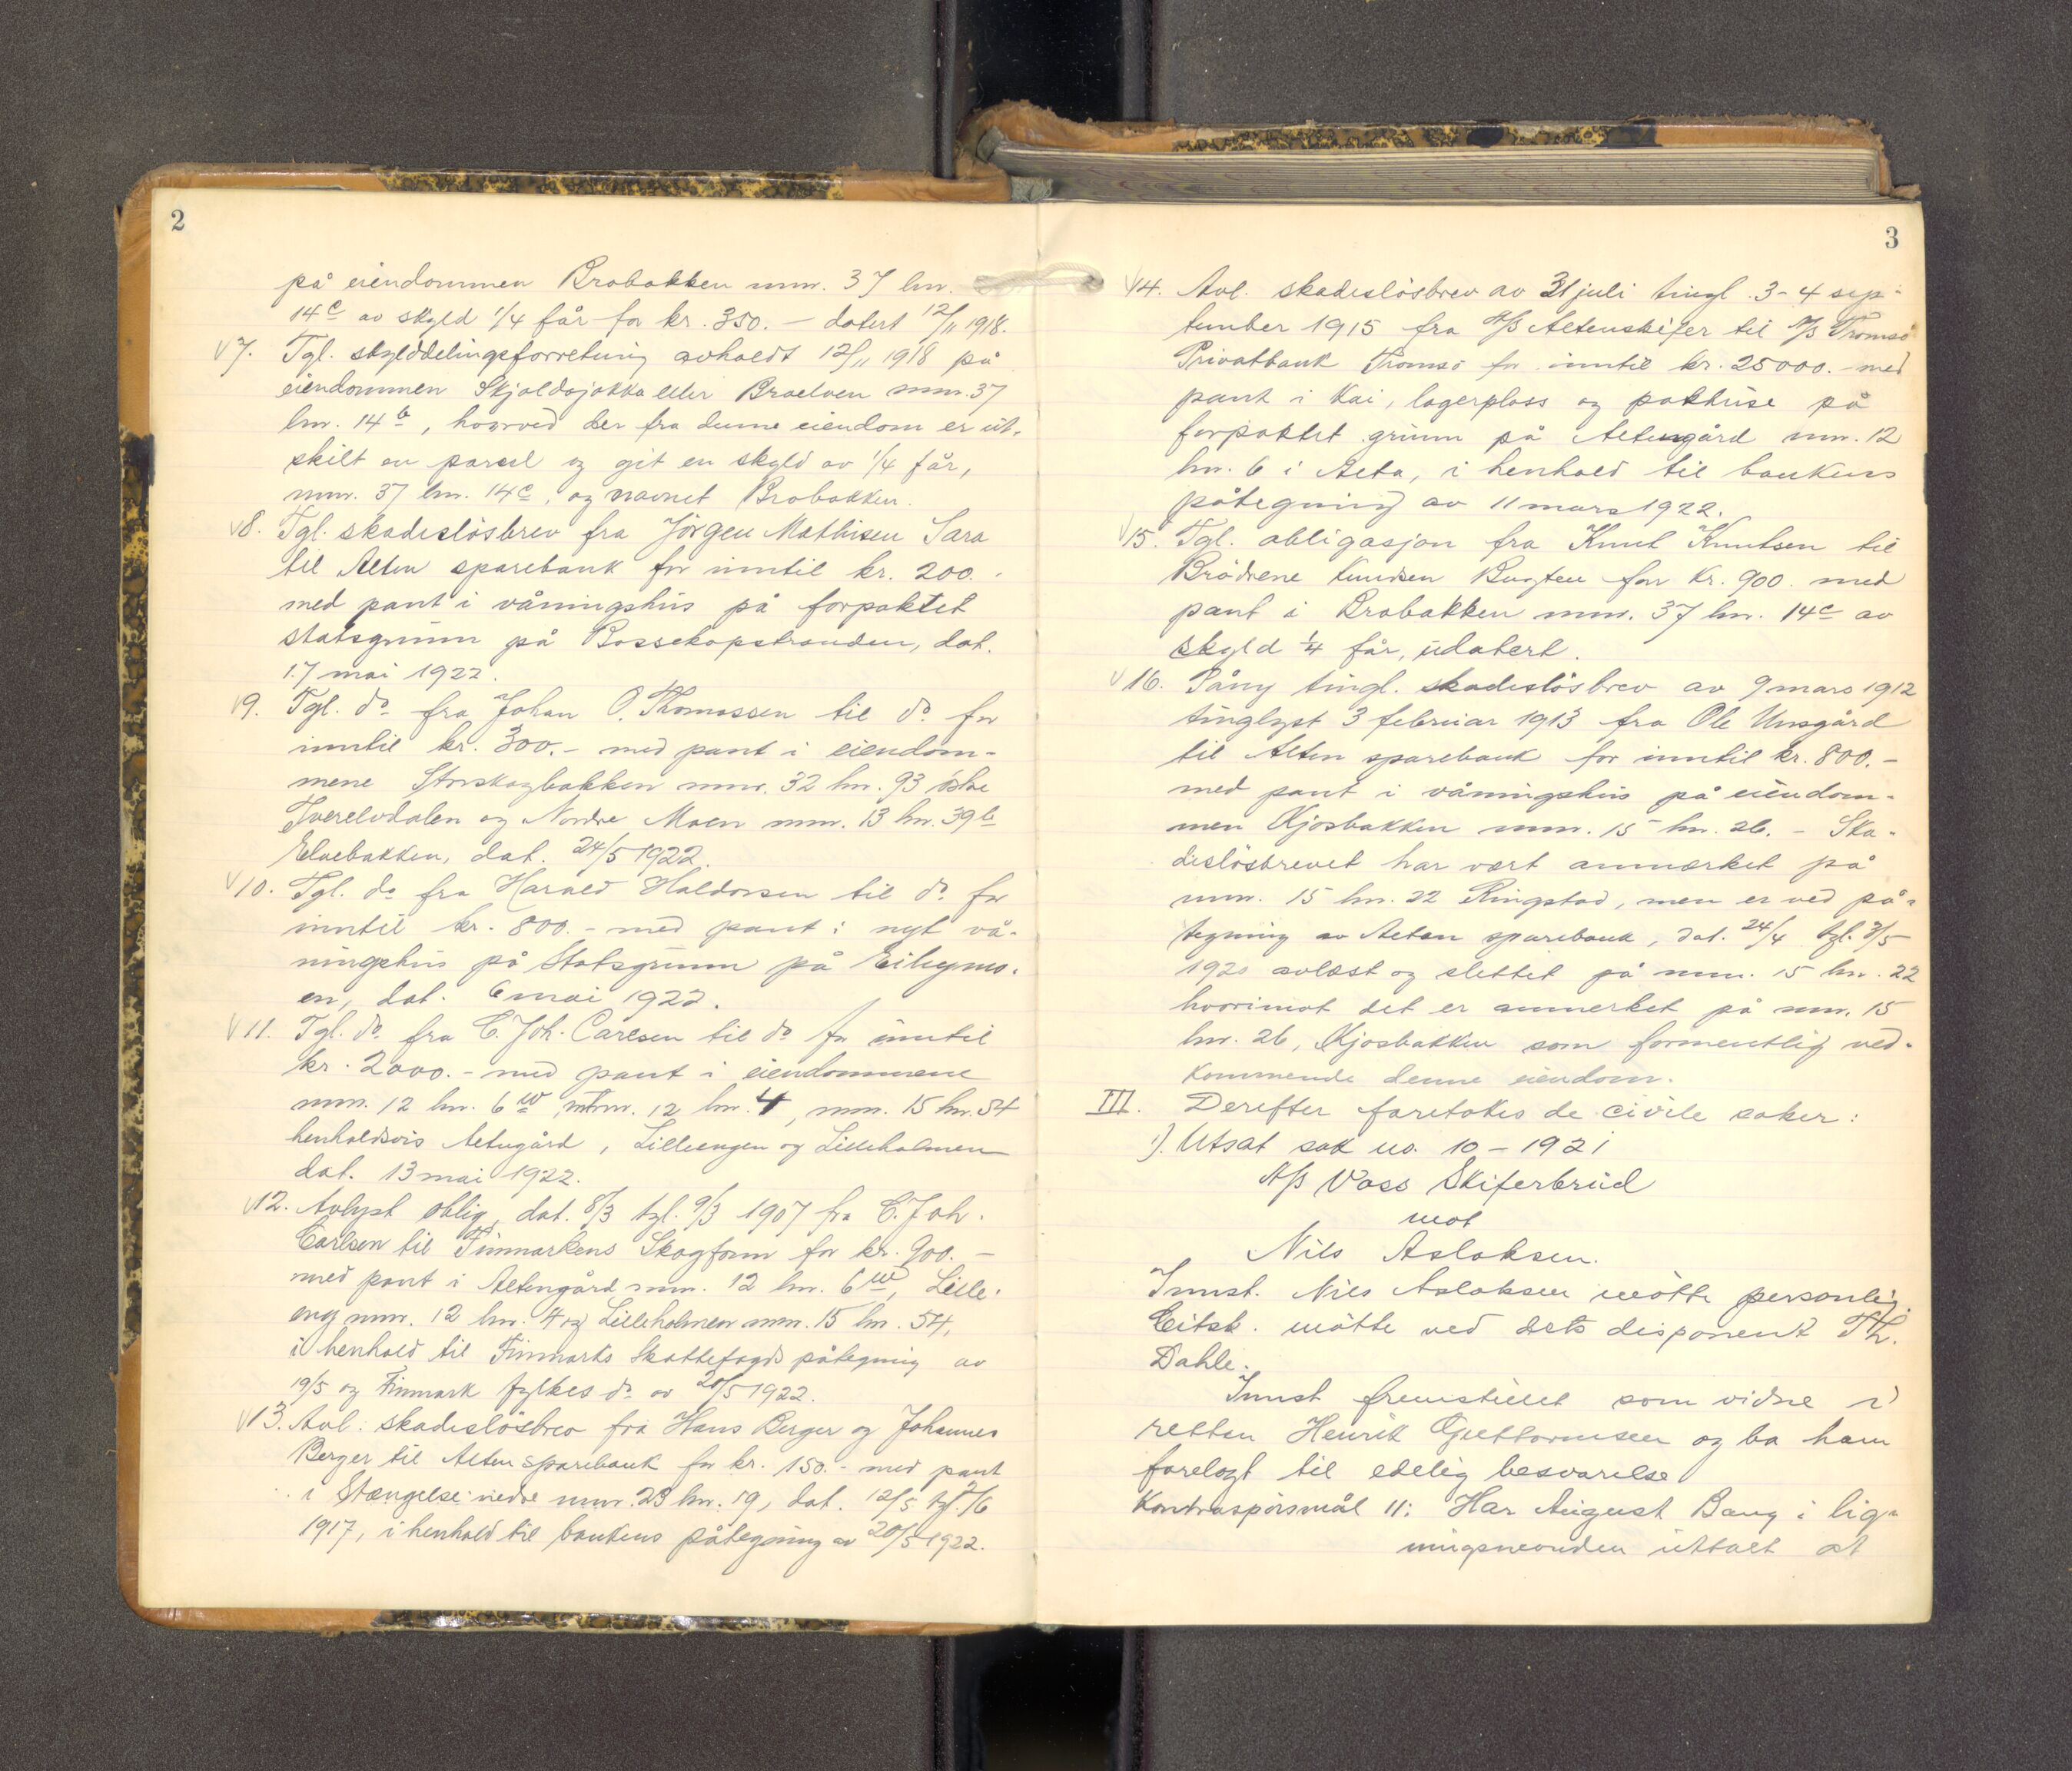 2
på eiendommen Brobakken mnr. 37 lnr.
14c av skyld 1/4 får for kr. 350.- datert 12/11 1918.
7. Tgl. skylddelingsforretning avholdt 12/11 1918 på
eiendommen Skjaldajokka eller Braelven mnr. 37
lnr. 14b, hvorved der fra denne eiendom er ut-
skilt en parcel og git en skyld av 1/4 får,
mnr. 37 lnr. 14c, og navnet Brobakken.
8. Tgl. skadeslösbrev fra Jörgen Mathisen Sara
til Alten sparebank for inntil kr. 200.-
med pant i våningshus på forpaktet
statsgrunn på Bossekopstranden, dat.
17 mai 1922.
9. Tgl. do fra Johan O. Thomassen til do for
inntil kr. 300.- med pant i eiendom-
mene Storskogbakken mnr. 32 lnr. 93 östre
Tverelvdalen og Nordre Moen mnr. 13 lnr. 39b
Elvebakken, dat. 24/5 1922.
10. Tgl. do fra Harald Haldorsen til do for
inntil kr. 800.- med pant i nyt vå-
ningshus på Statsgrunn på
en, dat. 6 mai 1922.
11. Tgl. do fra C. Joh. Carlsen til do for inntil
kr. 2000.- med pant i eiendommene
mnr. 12 lnr. 6w, mnr. 12 lnr. 4, mnr. 15 lnr. 54
henholdsvis Altengård, Lilleengen og Lilleholmen
dat. 13 mai 1922.
12. Avlyst oblig. dat. 8/3 tgl. 9/3 1907 fra C. Joh.
Carlsen til Finnmarkens Skogfond for kr. 900.-
med pant i Altengård mnr. 12 lnr. 6w, Lille-
eng mnr. 12 lnr. 4 og Lilleholmen mnr. 15 lnr. 54,
i henhold til Finmarks Skattefogds påtegning av
19/5 og Finmark fylkes do av 20/5 1922.
13. Avl. skadeslösbrev fra Hans Berger og Johannes
Berger til Alten sparebank for kr. 150.- med pant
i Stengelse nedre mnr. 23 lnr. 19, dat. 12/5 tgl. 2/6
1917, i henhold til bankens påtegning av 20/5 1922.
3
14. Avl. skadeslösbrev av 31 juli tingl. 3-4 sep-
tember 1915 fra A/S Altenskifer til A/S Tromsö
Privatbank Tromsö for inntil kr. 25000.- med
pant i Kai, lagerplass og pakhuse på
forpaktet grunn på Altengård mnr. 12
lnr. 6 i Alta, i henhold til bankens
påtegning av 11 mars 1922.
15. Tgl. obligasjon fra Knut Knutsen til
Brödrene Knudsen Bugten for kr. 900. med
pant i Brobakken mnr. 37 lnr. 14c av
skyld 1/4 får, udatert.
16. Påny tingl. skadeslösbrev av 9 mars 1912
tinglyst 3 februar 1913 fra Ole Unsgård
til Alten sparebank for inntil kr. 800.-
med pant i våningshus på eiendom-
men Kjosbakken mnr. 15 lnr. 26. - Ska-
deslösbrevet har vært anmerket på
mnr. 15 lnr. 22 Ringstad, men er ved på-
tegning av Alten sparebank, dat. 24/4 tgl. 3/5
1920 avlæst og slettet på mnr. 15 lnr. 22
hvorimot det er anmerket på mnr. 15
lnr. 26, Kjosbakken som formentlig ved-
kommende denne eiendom.
III. Derefter foretokes de civile saker:
1). Utsat sak no. 10 - 1921
A/S Voss Skiferbrud
mot
Nils Aslaksen.
Innst. Nils Aslaksen mötte personlig.
Citsk. mötte ved dets disponent Th.
Dahle.
Innst fremstillet som vidne i
retten Henrik Guttormsen og ba ham
forelagt til edelig besvarelse
Kontraspörsmål 11: Har August Bang i lig-
ningsnevnden uttalt at